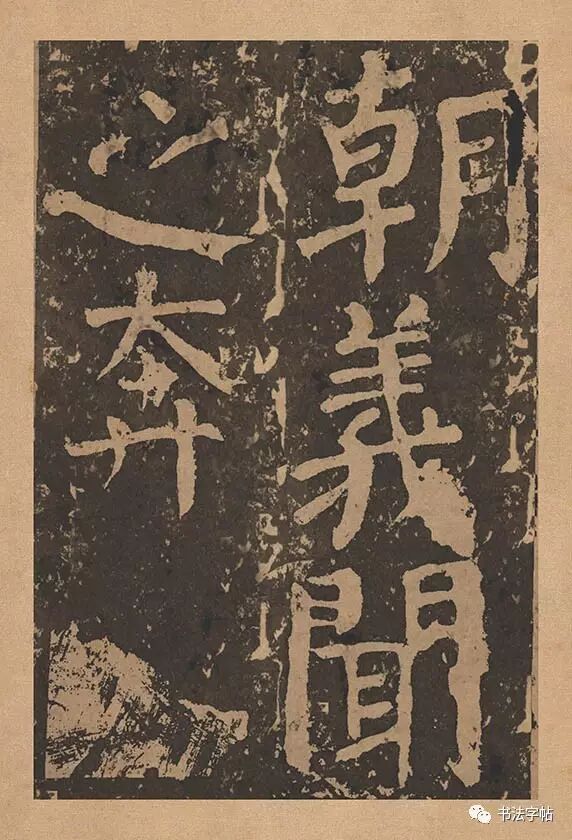 朝義聞
之奔
书法字帖